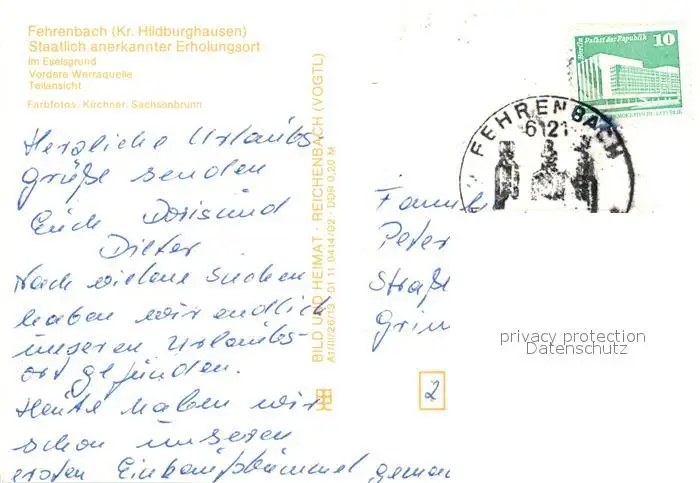 Fehrenbach (Kr. Hildburghausen)
Staatlich anerkannter Erholungsort
Im Eselsgrund
Vordere Werraquelle
Teilansicht
Farbfotos: Kirchner, Sachsenbrunn
Herzliche Urlaubs-
grüße senden
Euch Doris und
Dieter
Nach vielem Suchen
haben wir endlich
unseren Urlaubs-
ort gefunden.
Heute haben wir
schon unseren
ersten Einkaufsbummel
BILD UND HEIMAT · REICHENBACH (VOGTL)
A1/III/26/13 01 11 0414/02 DDR 0,20 M
Berlin Palast der Republik
10
DEMOKRATISCHE REPUBLIK
FEHRENBACH
6121
Peter
Straße
privacy protection
Datenschutz
2